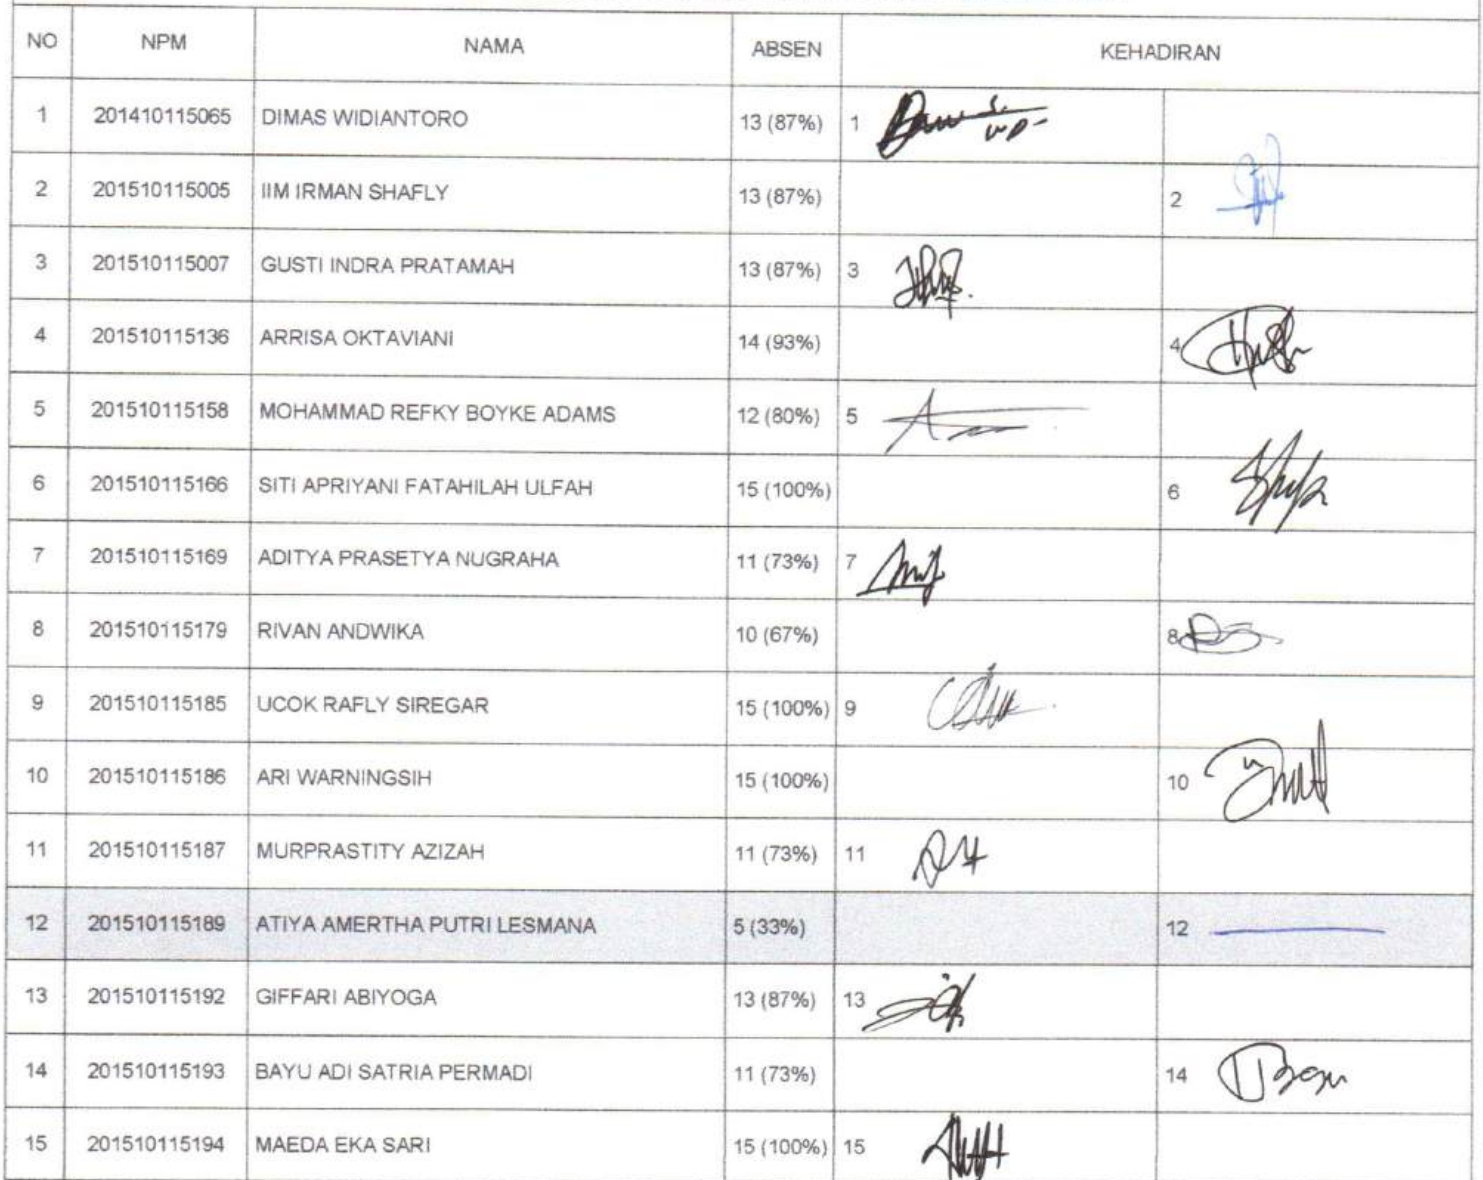 NO NPM NAMA ABSEN KEHADIRAN
1 201410115065 DIMAS WIDIANTORO 13 (87%) 1
2 201510115005 IIM IRMAN SHAFLY 13 (87%) 2
3 201510115007 GUSTI INDRA PRATAMAH 13 (87%) 3
4 201510115136 ARRISA OKTAVIANI 14 (93%) 4
5 201510115158 MOHAMMAD REFKY BOYKE ADAMS 12 (80%) 5
6 201510115166 SITI APRIYANI FATAHILAH ULFAH 15 (100%) 6
7 201510115169 ADITYA PRASETYA NUGRAHA 11 (73%) 7
8 201510115179 RIVAN ANDWIKA 10 (67%) 8
9 201510115185 UCOK RAFLY SIREGAR 15 (100%) 9
10 201510115186 ARI WARNINGSIH 15 (100%) 10
11 201510115187 MURPRASTITY AZIZAH 11 (73%) 11
12 201510115189 ATIYA AMERTHA PUTRI LESMANA 5 (33%) 12
13 201510115192 GIFFARI ABIYOGA 13 (87%) 13
14 201510115193 BAYU ADI SATRIA PERMADI 11 (73%) 14
15 201510115194 MAEDA EKA SARI 15 (100%) 15